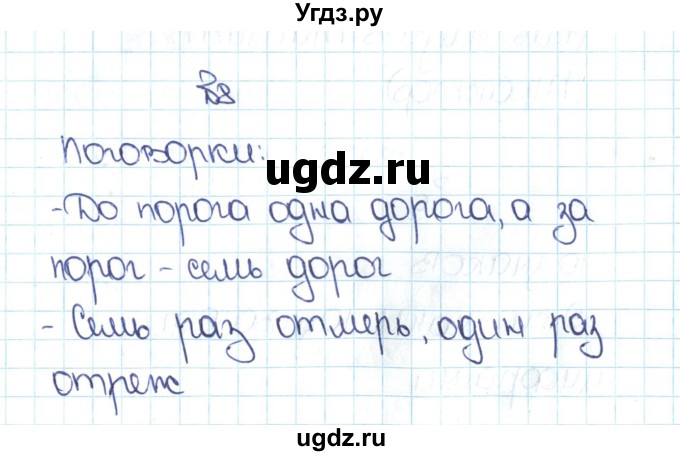 Угдз.ру
88
Поговорки:
ugdz.ru
-До порога одна дорога, а за
порог - семь дорог
- Семь раз отмерь, один раз
отреж
ugdz.ru